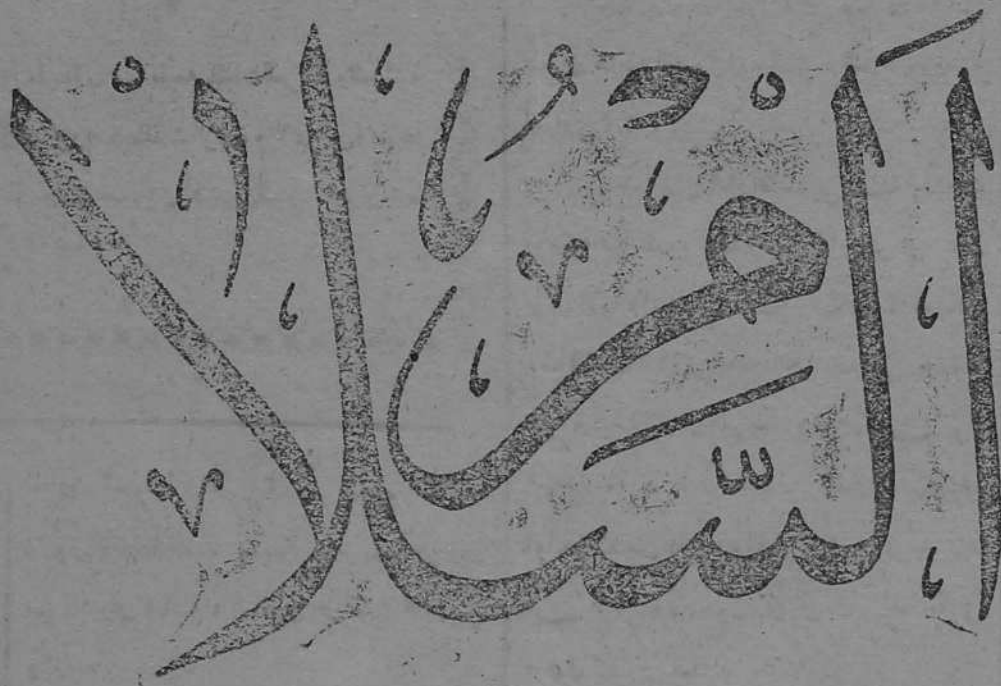 اَلْسَّلاْمُ